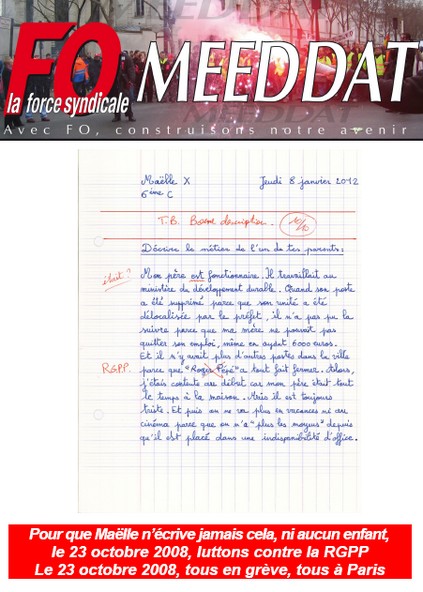 FO MEEDDAT
la force syndicale
MEEDDAT
Avec FO, construisons notre avenir
Maëlle X Jeudi 8 janvier 2012
6ème C
T.B. Bonne description. 10/10
Décrire le métier de l'un de tes parents :
était ? Mon père est fonctionnaire. Il travaillait au
ministère du développement durable. Quand son poste
a été supprimé parce que son unité a été
délocalisée par le préfet, il n'a pas pu la
suivre parce que ma mère ne pouvait pas
quitter son emploi, même en ayant 6000 euros.
Et il n'y avait plus d'autres postes dans la ville
R.G.P.P. parce que "Roger Pépé" a tout fait fermer. Alors,
j'étais contente au début car mon père était tout
le temps à la maison. Mais il est toujours
triste. Et puis on ne va plus en vacances ni au
cinéma parce que on n'a "plus les moyens" depuis
qu'il est placé dans une indisponibilité d'office.
Pour que Maëlle n'écrive jamais cela, ni aucun enfant,
le 23 octobre 2008, luttons contre la RGPP
Le 23 octobre 2008, tous en grève, tous à Paris